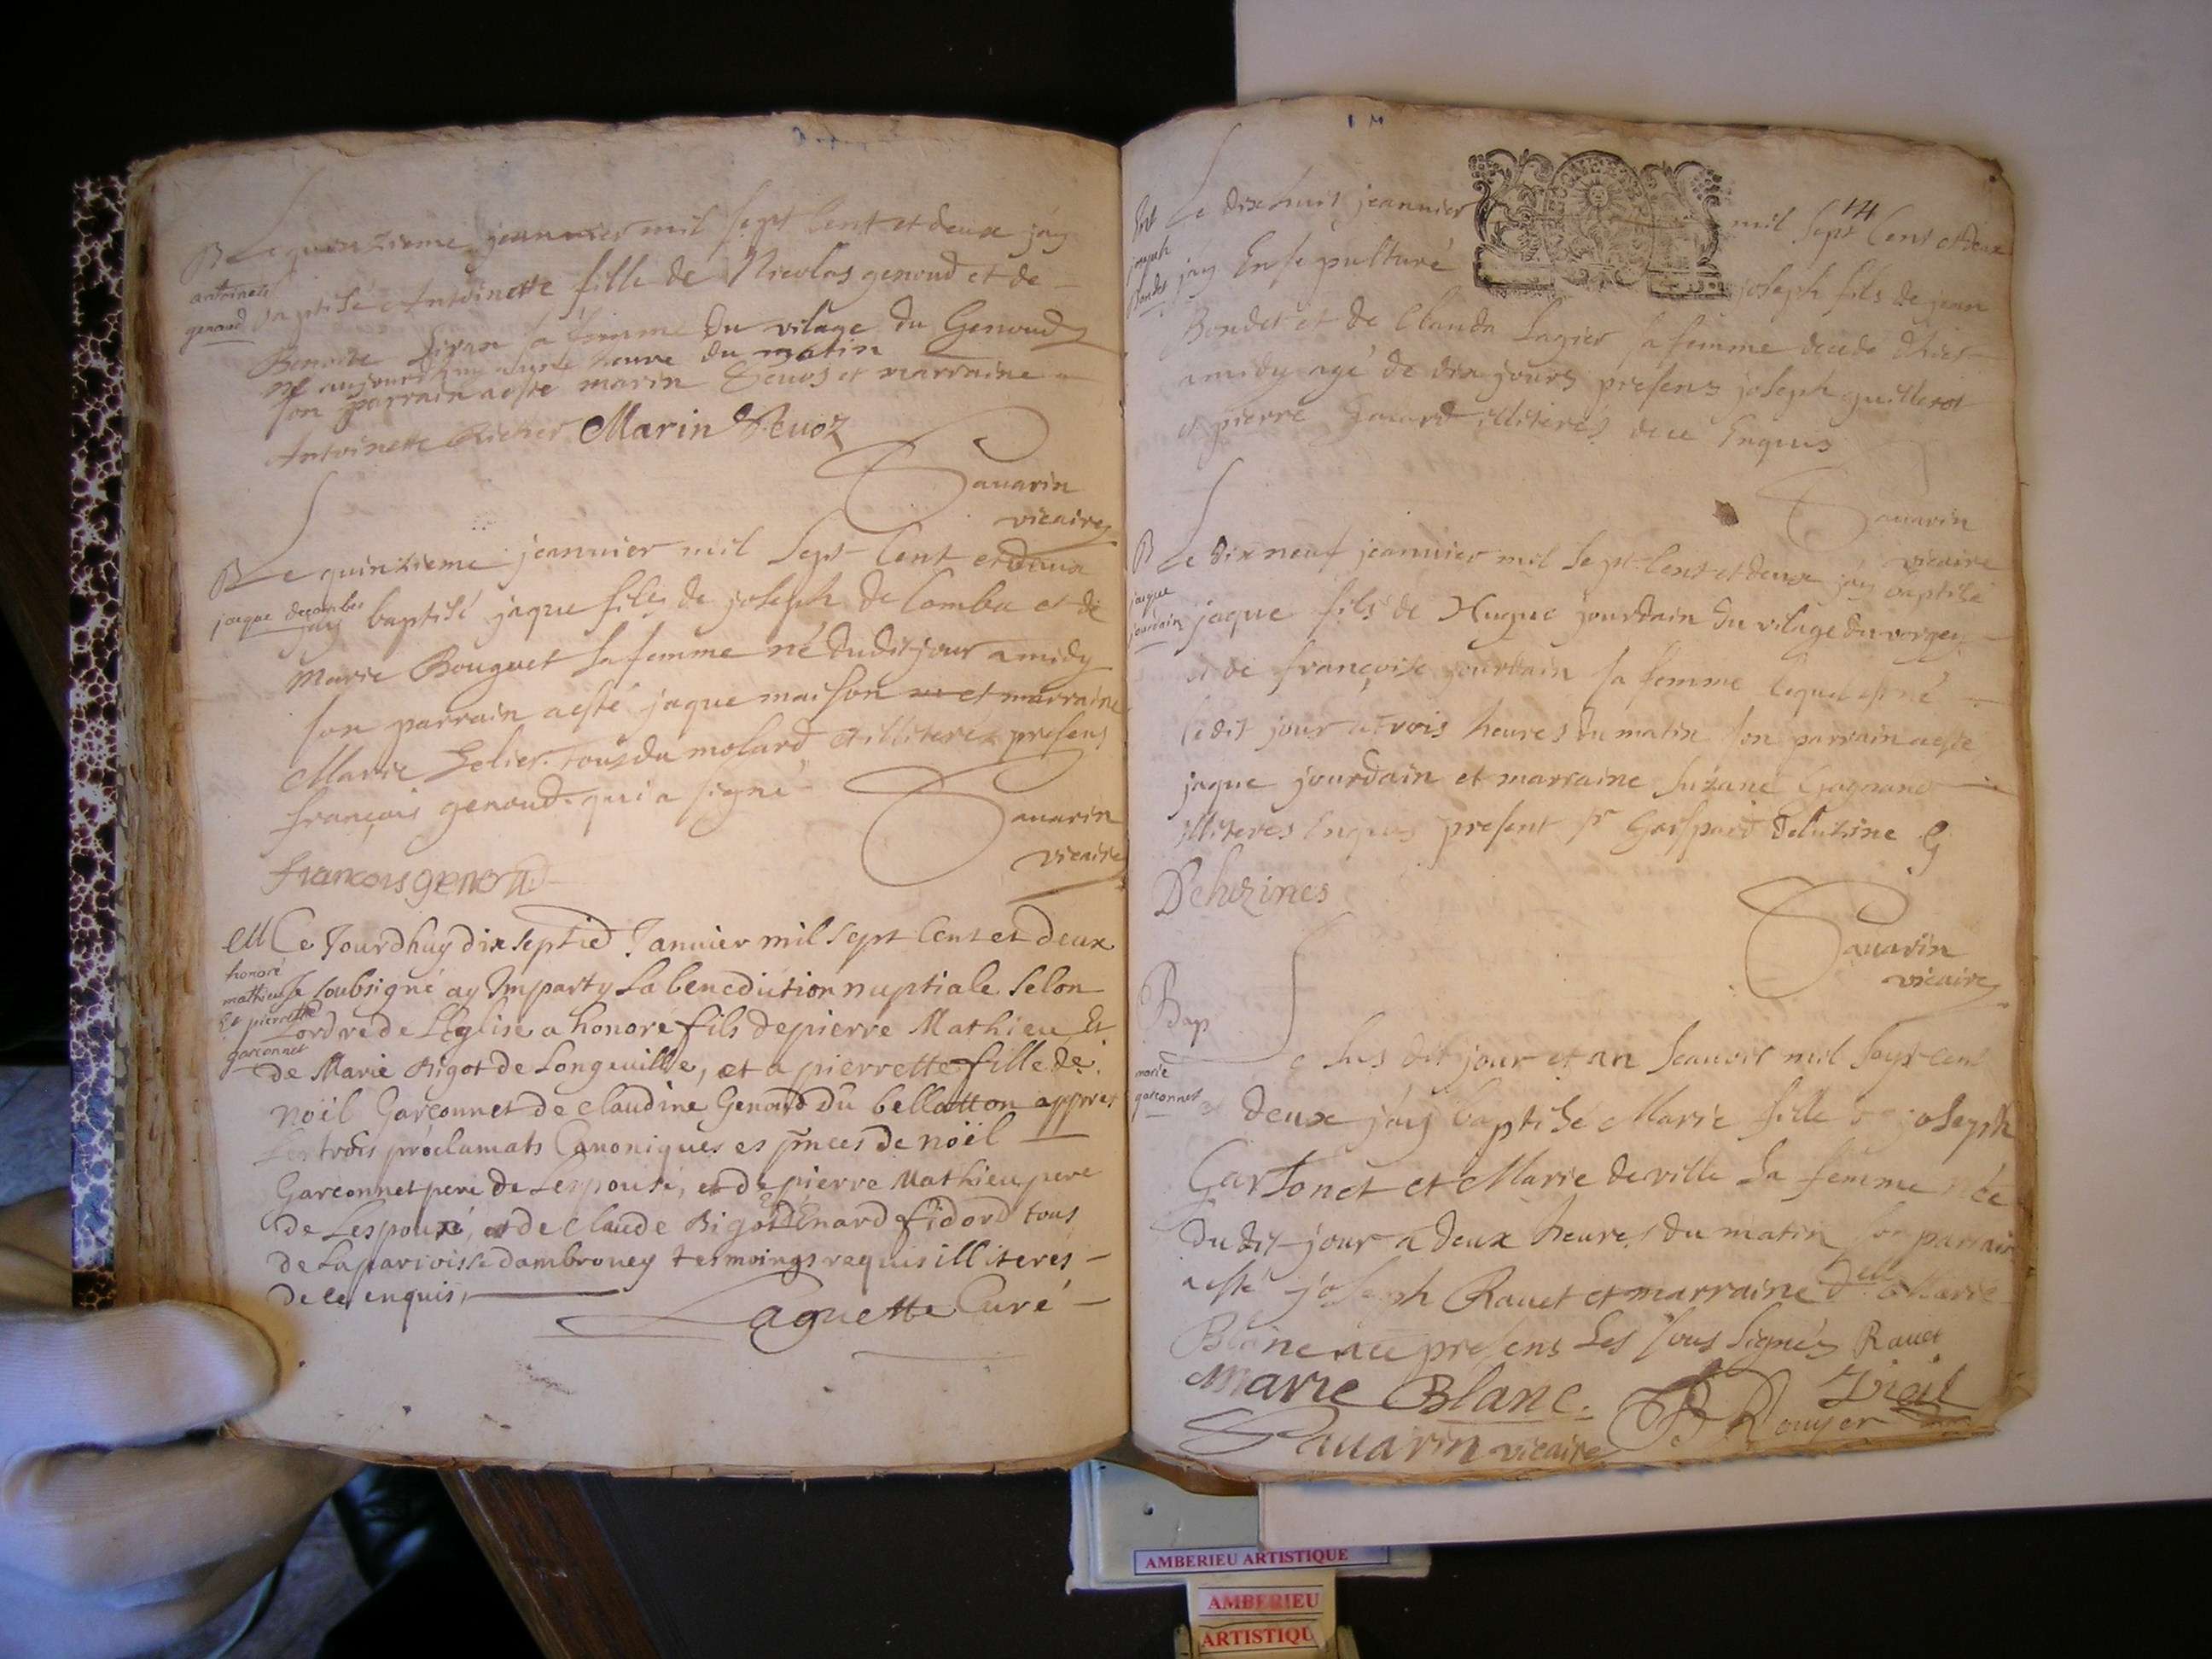 B Le quinzieme jeanuier mil sept Cent et deux j'ay
antoinette
genoud
baptisé Antoinette fille de Nicolas genoud et de
Benoite sa femme du vilage du Genoud
né aujourdhuy a heure du matin
son parrain a esté marin Beuos et marraine
Antoinette Marin Beuoz
Sauarin
vicaire
B Le quinzieme jeanuier mil sept Cent et deux
jaque decombe
j'ay baptisé jaque fils de joseph de Combe et de
Marie Bouguet sa femme né dudit jour a midy
son parrain a esté jaque maison et marraine
Marie tous du molard et illiterés presens
françois genoud qui a signé
Sauarin
vicaire
francois genoud
M Ce Jourdhuy dix septie Januier mil sept Cent et deux
honoré
mathieu
Et pierrette
garconnet
Je soubsigné ay Imparty La benediction nuptiale selon
Lordre de L'Eglise a honore fils de pierre Mathieu Et
de Marie Bigot de Longeuille, et a pierrette fille de
noël Garconnet de claudine Genoud du bellatton appres
Les trois proclamats Canoniques es pnces de noël
Garconnet pere de Lespouse, et de pierre Mathieu pere
de Lespoux, et de claude Bigot Enard fidord tous
de La parroisse dambroney tesmoings requis illiteres
de ce enquis,
Laguette Curé
14
Ent
joseph
Bondet
Le dixhuit jeanuier mil sept Cent et deux
j'ay Ensepulturé joseph fils de jean
Bondet et de Clauda Lagier sa femme decedé d'hier
a midy agé de dix jours presens joseph guillerot
et pierre illiterés de ce Enquis
Sauarin
vicaire
B Le dix neuf jeanuier mil sept Cent et deux j'ay baptisé
jaque
jourdain
jaque fils de Hugue jourdain du vilage du vorgey
et de françoise jourdain sa femme lequel est né
le dit jour a trois heures du matin son parrain a esté
jaque jourdain et marraine Suzane Gagnand
illiteres Enquis present Sr Gaspard Deluzine G
Deluzines
Sauarin
vicaire
Bap
marie
garconnet
Le sus dit jour et an scauoir mil sept cent
et deux j'ay baptisé Marie fille de joseph
Garsonet et Marie deville sa femme née
du dit jour a deux heures du matin son parrain
a esté joseph Rauet et marraine Delle Marie
Blanc presens Les sous signés Rauet
Marie Blanc. Vieil
Sauarin vicaire B Rouyer
AMBERIEU ARTISTIQUE
AMBERIEU
ARTISTIQU